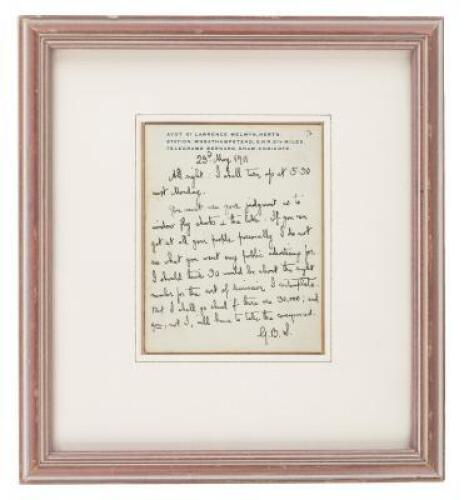 AYOT ST LAWRENCE, WELWYN, HERTS.
STATION: WHEATHAMPSTEAD, G.N.R. 2¼ MILES.
TELEGRAMS: BERNARD SHAW, CODICOTE.
23rd May 1911
All right: I shall turn up at 5.30
next Monday.
You must use your judgment as to
window & the like. If you can
get at all your people personally I do not
see what you want any public advertising for
I should think 30 would be about the right
number for the sort of I contemplate.
But I shall go ahead if there are 30,000; and
you, not I, will have to take the consequences.
G.B.S.